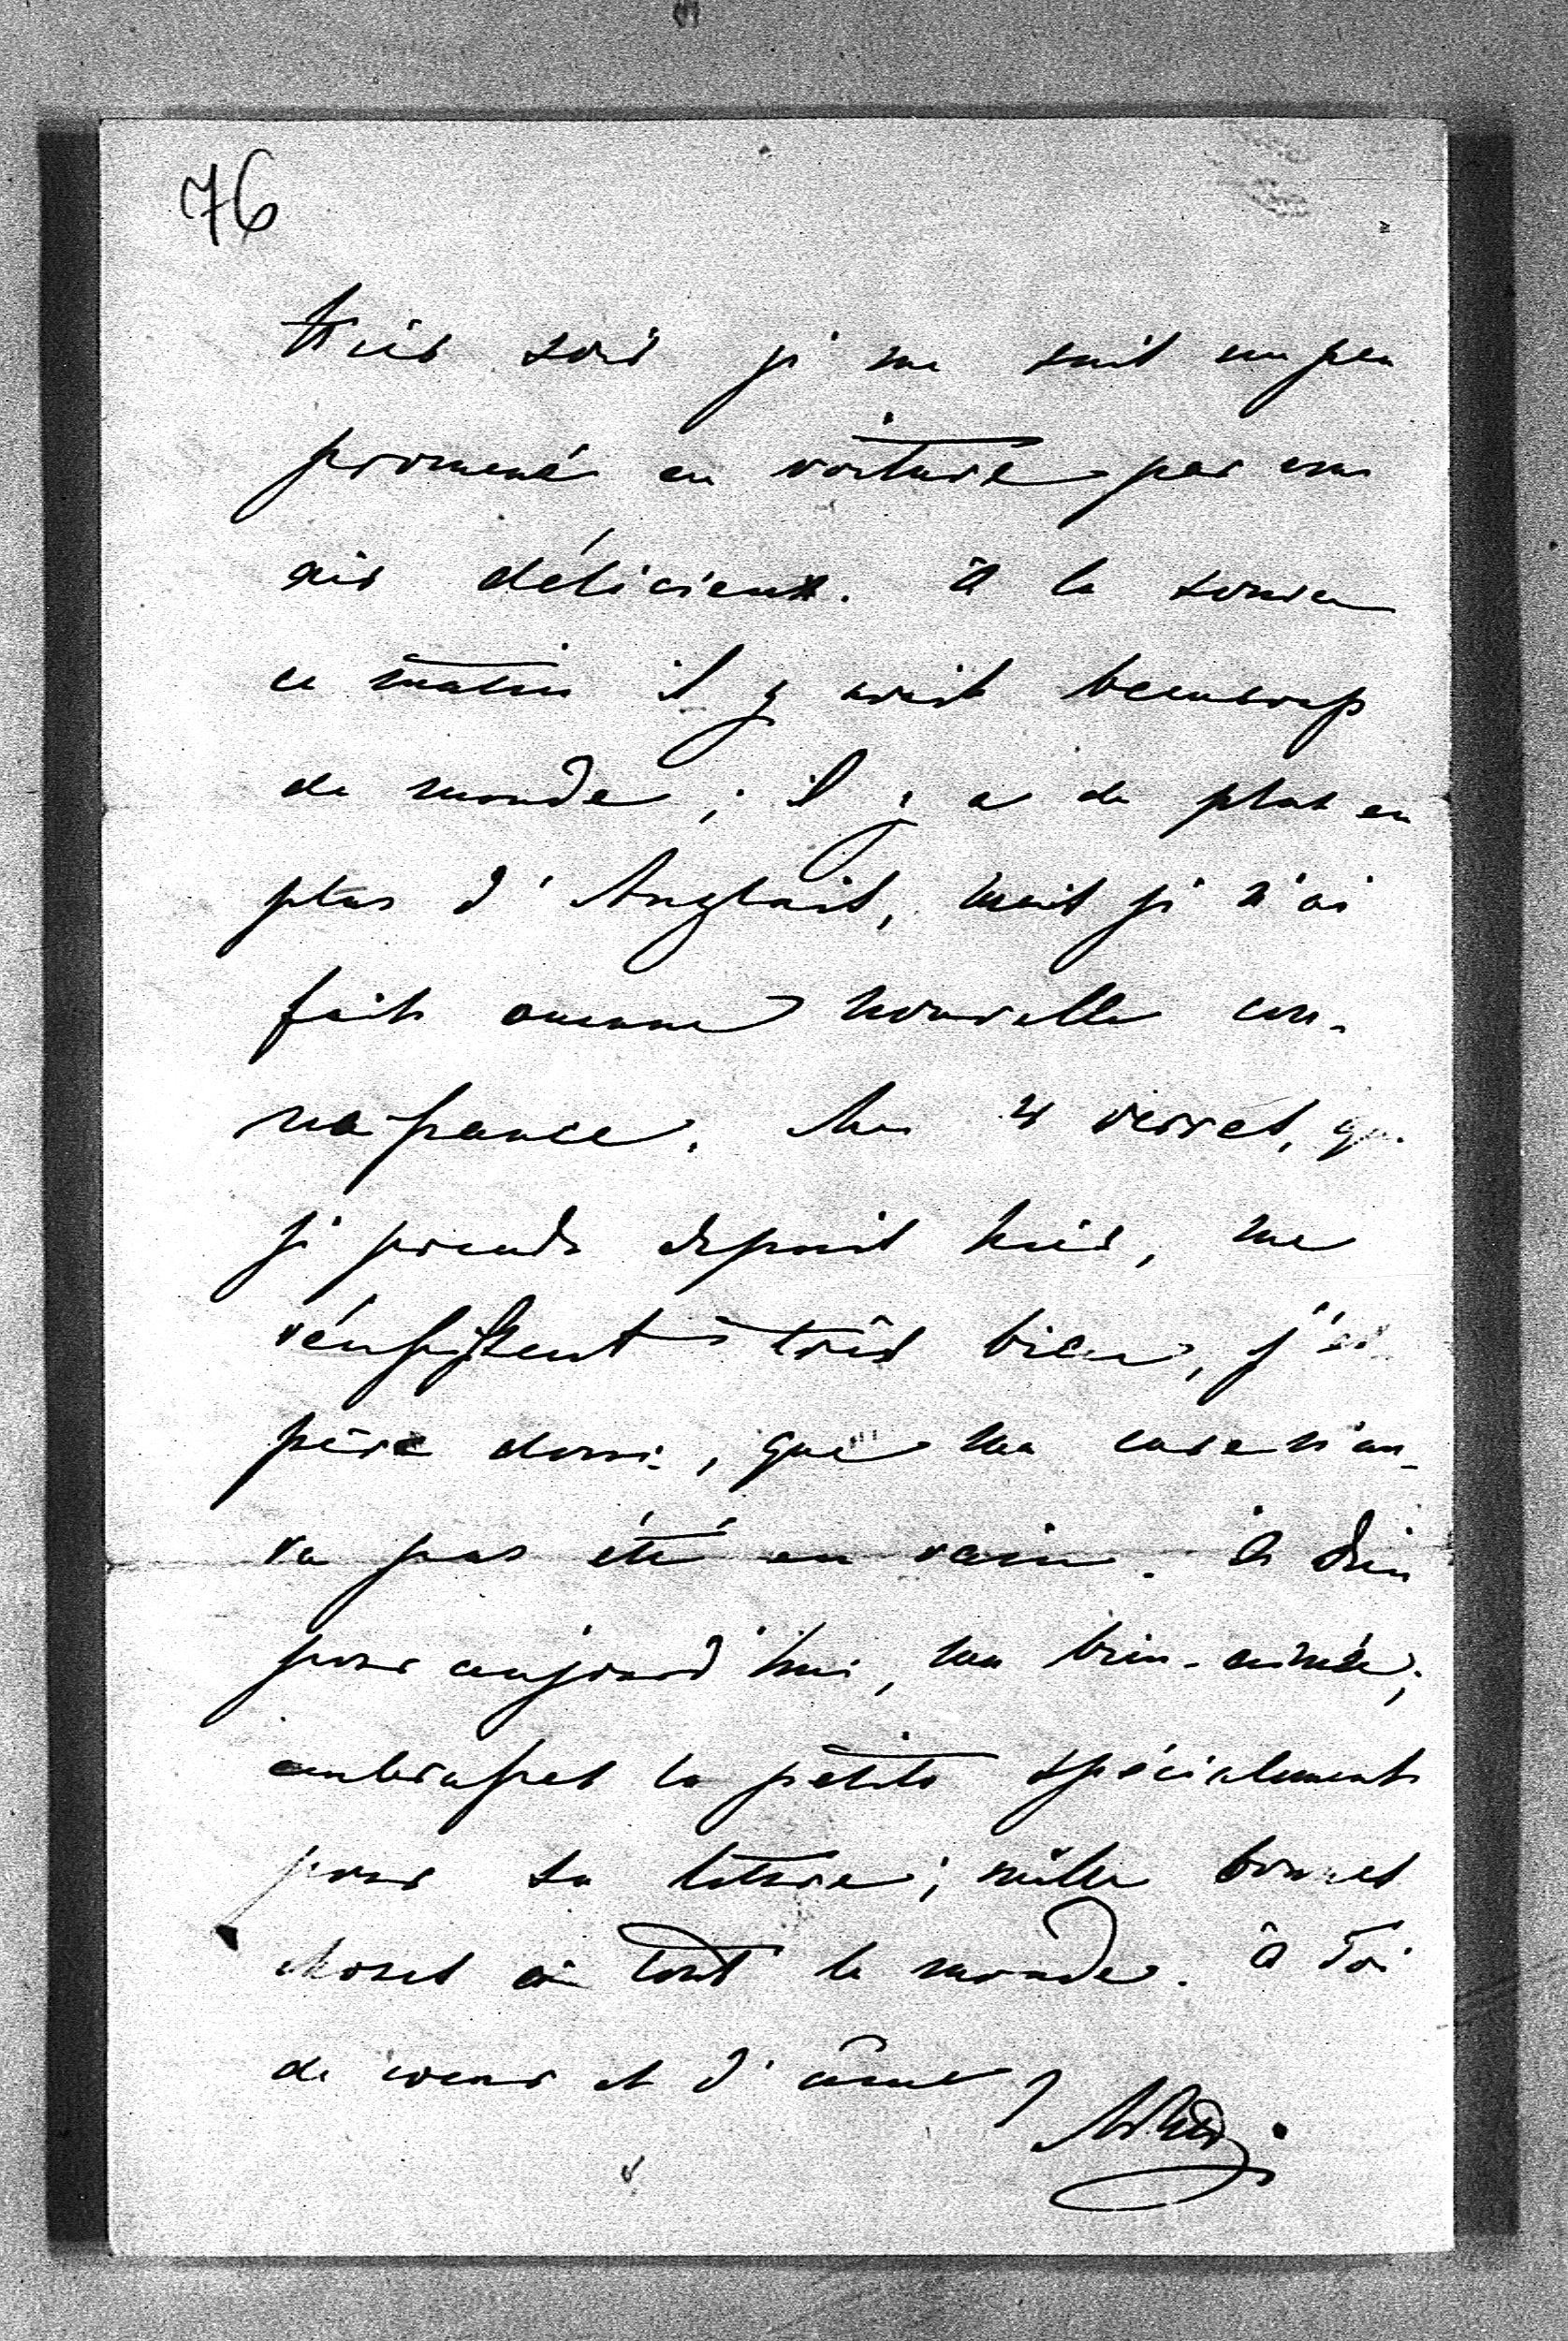 76
Hier soir je me suis un peu
promené en voiture par un
air délicieux. à la source
ce matin il y avait beaucoup
de monde; il y a de plus en
plus d'Anglais, mais je n'ai
fait aucune nouvelle con-
naissance. Les 4 verres, que
je prends depuis hier, me
réussissent très bien, j'es
père donc, que ma cure n'au-
ra pas été en vain. à Dieu
pour aujourd'hui, ma bien-aimée;
embrasses la petite spécialement
pour sa lettre; mille bonnes
choses à tout le monde. à Toi
de coeur et d'âme